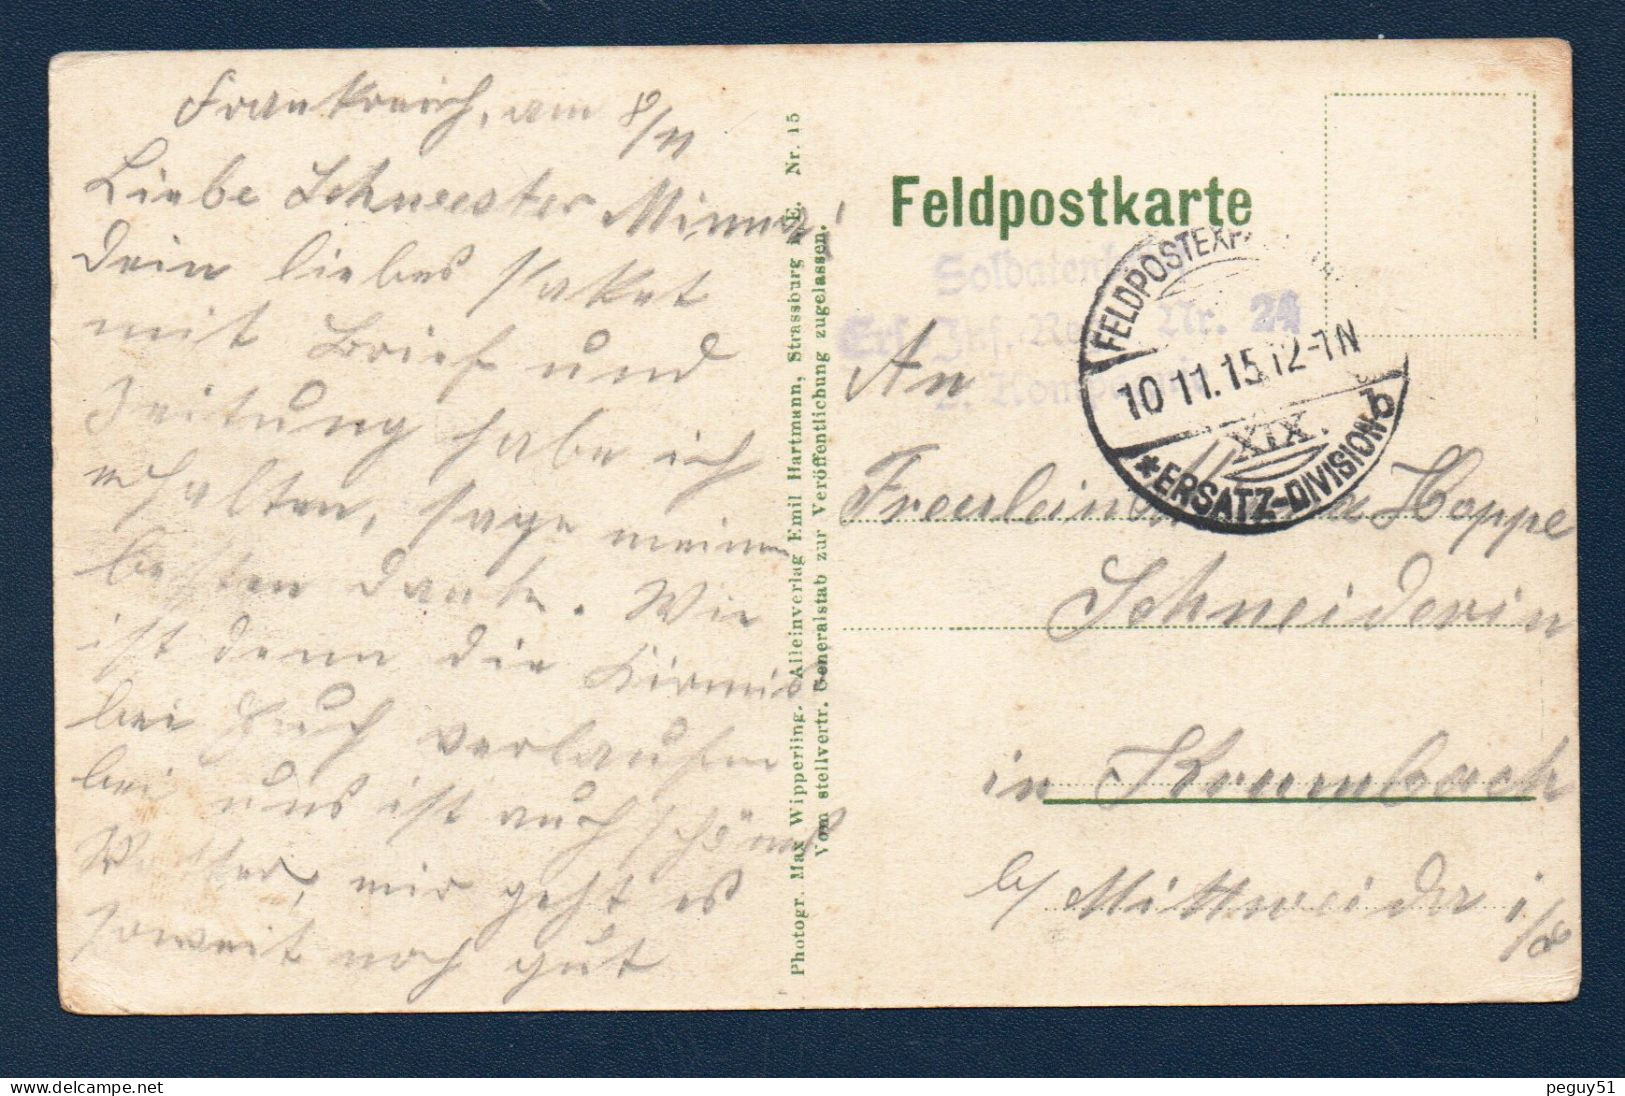 Frankreich, am 8/11
Liebe Schwester Minna!
Dein liebes Paket
mit Brief und
Zeitung habe ich
erhalten, sage meinen
besten Dank. Wie
ist denn die Kirmis
bei Euch verlaufen
bei uns ist auch schönes
Wetter, mir geht es
soweit noch gut
Photogr. Max Wipperling. Alleinverlag Emil Hartmann, Strassburg i. E. Nr. 15
Vom stellvertr. Generalstab zur Veröffentlichung zugelassen.
Feldpostkarte
Soldatenbrief
Ers. Inf. Reg. Nr. 24
Kompagnie
FELDPOSTEXP
10.11.15.12-1N
XIX.
*ERSATZ-DIVISION b
An
Freulein Minna Hoppe
Schneiderin
in Krumbach
b/ Mittweida i/S
peguy51
www.delcampe.net